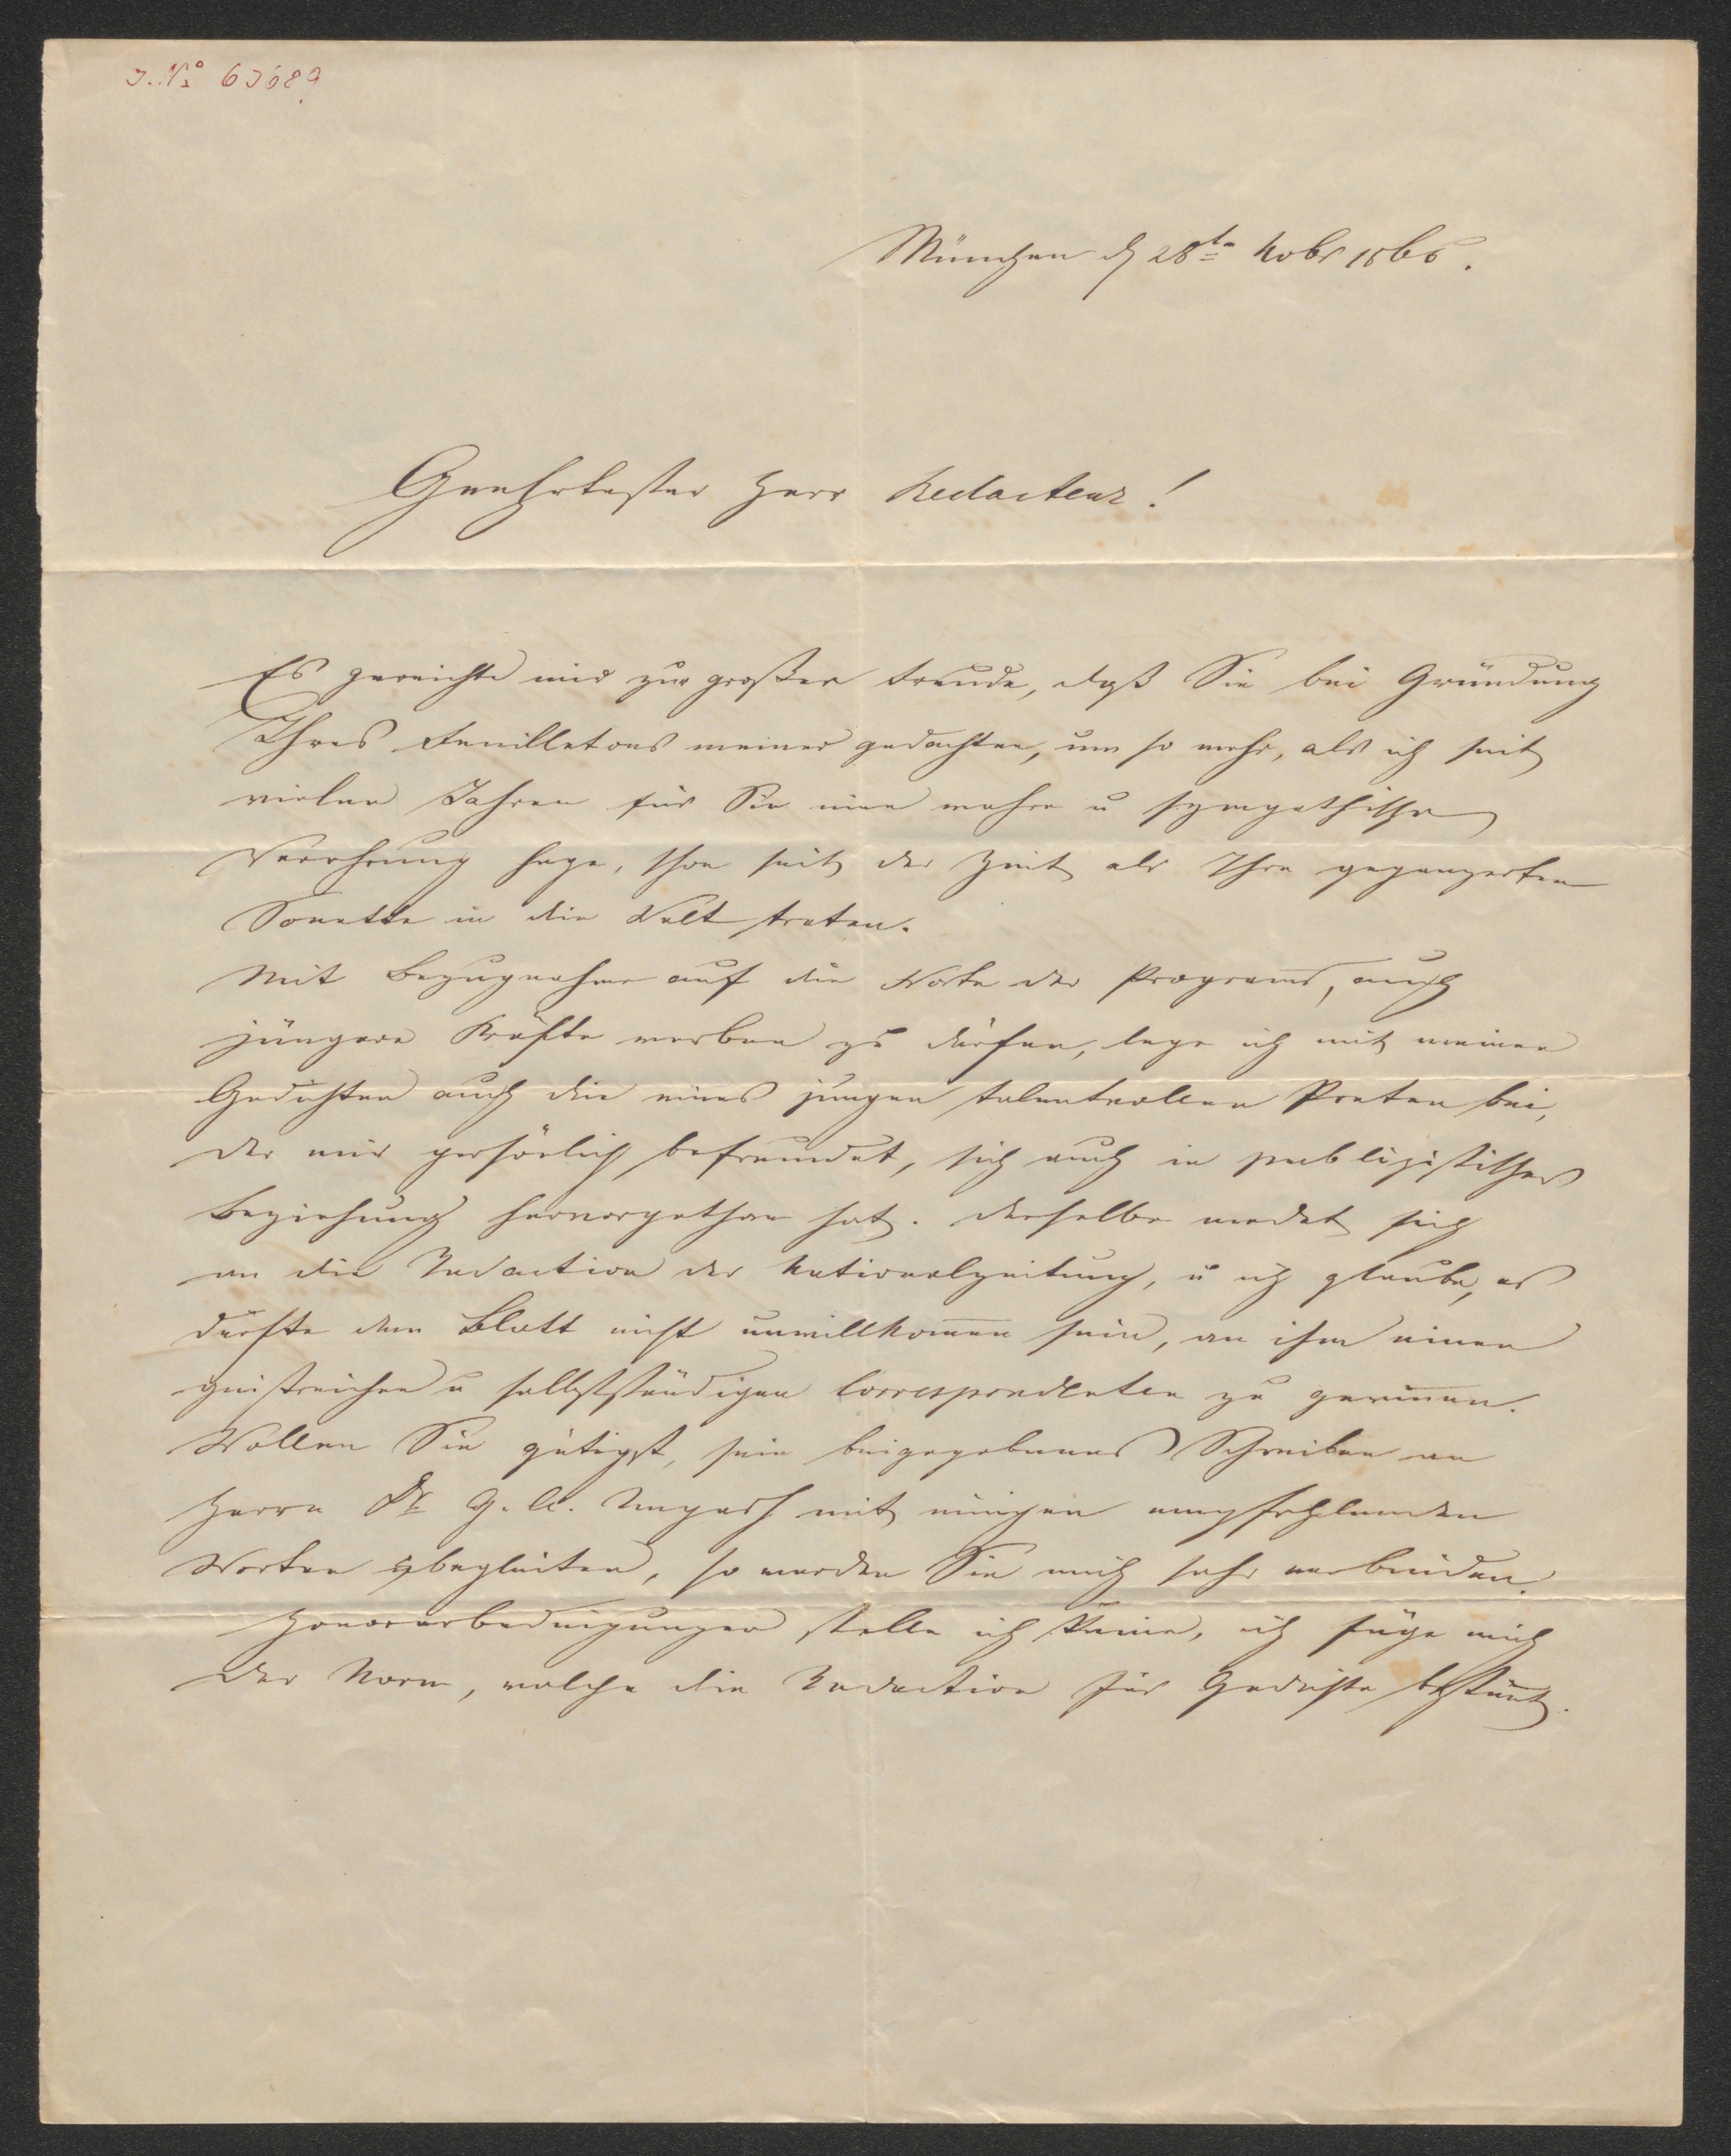 J. No 63689
München d 28te Nobr 1865.
Geehrtester Herr Redacteur!
Es gereichte mir zur großen Freude, daß Sie bei Gründung
Ihres Feuilletons meiner gedachten, um so mehr, als ich seit
vielen Jahren für Sie eine wahre u sympathische
Verehrung hege, schon seit der Zeit als Ihre gepanzerten
Sonette in die Welt traten.
Mit Bezugnahme auf die Worte des Programs, auch
jüngere Kräfte werben zu dürfen, lege ich mit meinen
Gedichten auch die eines jungen talentvollen Poeten bei,
der mir persönlich befreundet, sich auch in publizistischer
Beziehung hervorgethan hat. Derselbe wendet sich
an die Redaction der Nationalzeitung, u ich glaube, es
dürfte dem Blatt nicht unwillkomen sein, an ihm einen
geistreichen u selbstständigen Correspondenten zu gewinen.
Wollen Sie gütigst, sein beigegebenes Schreiben an
Herrn Dr G. A. mit einigen empfehlenden
Worten begleiten, so werden Sie mich sehr verbinden.
Honorarbedingungen stelle ich keine, ich füge mich
der Norm, welche die Redaction für Gedichte bestimt.